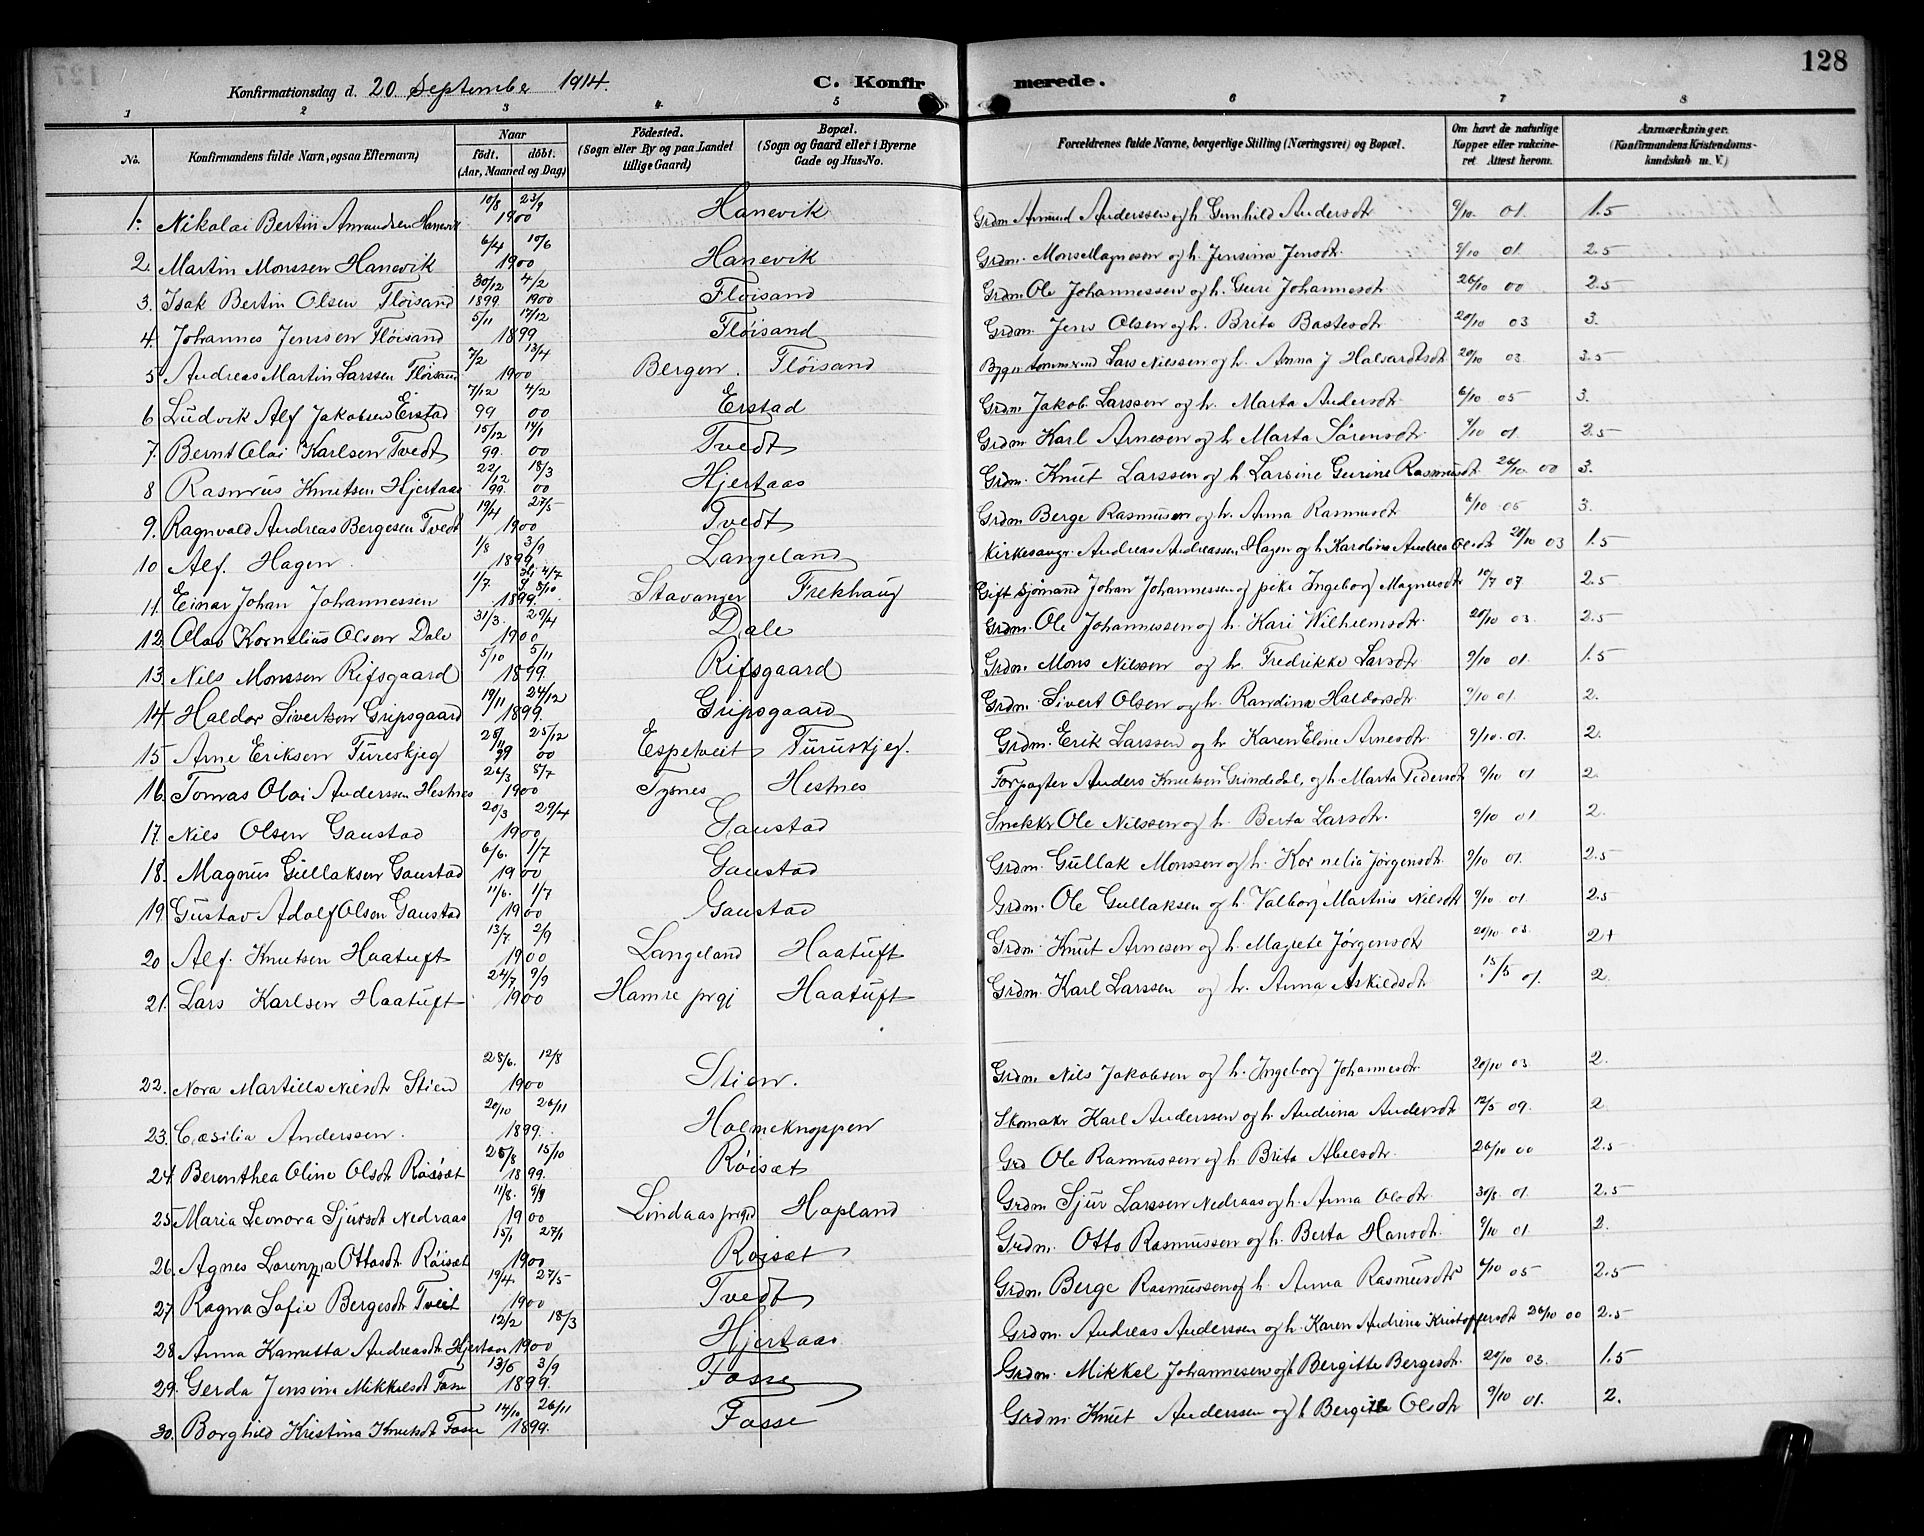 128
Konfirmationsdag d. 20 September 1914.
C. Konfirmerede.
1 2 3 4 5 6 7 8
No.
Konfirmandens fulde Navn, ogsaa Efternavn)
Naar
født. døbt.
(Aar, Maaned og Dag)
Fødested.
(Sogn eller By og paa Landet tillige Gaard)
Bopæl.
(Sogn og Gaard eller i Byerne Gade og Hus-No.
Forældrenes fulde Navne, borgerlige Stilling (Næringsvei) og Bopæl.
Om havt de naturlige Kopper eller vakcineret Attest herom.
Anmærkninger.
(Konfirmandens Kristendomskundskab m. V.)
1. Nikolai Bertin Amundsen Hanevik 10/8 23/9 1900 Hanevik Grdm Amund Anderssen og h. Gunhild Andersdtr 9/10 01 1.5
2. Martin Monssen Hanevik 6/4 10/6 1900 Hanevik Grdm. Mons Magnesen og h. Jensina Jensdtr. 9/10 01 2.5
3. Isak Bertin Olsen Fløisand 30/12 1899 4/2 1900 Fløisand Grdm. Ole Johannessen og h. Guri Johannesdtr 26/10 00 2.5
4. Johannes Jenssen Fløisand 5/11 17/12 1899 Fløisand Grdm. Jens Olsen og h. Brita Bastesdtr 20/10 03 3.
5 Andreas Martin Larssen Fløisand 7/2 13/4 1900 Bergen. Fløisand Bygn tømmermd Lars Nilssen og h. Anna J Halvardsdtr 20/10 03. 3.5
6 Ludvik Alf Jakobsen Erstad 7/12 99 4/2 00 Erstad Grdm. Jakob Larssen og h. Marta Andersdtr 6/10 05 3.
7. Bernt Olai Karlsen Tvedt 15/12 99. 14/1 00 Tvedt Grdm. Karl Arnesen og h Marta Sørensdtr 9/10 01. 2.5
8 Rasmus Knutsen Hjertaas 22/12 99. 18/3 00 Hjertaas Grdm. Knut Larssen og h Larsine Gurine Rasmusdtr 26/10 00 3.
9. Ragnvald Andreas Bergesen Tvedt 19/4 27/5 1900 Tvedt Grdm Berge Rasmussen og h. Anna Rasmusdtr 6/10 05 3.
10 Alf. Hagen. 1/8 3/9 1899. Langeland Kirkesangr. Andreas Andreassen Hagen og h. Karoline Andrea Olsdtr 20/10 03 1.5
11. Einar Johan Johannessen 1/7 Hj 4/7 8/10 1899. Stavanger Frekhaug Gift sjømand Johan Johannessen og pike Ingeborg Magnusdtr 10/7 07 2.5
12. Olav Kornelius Olsen Dale 31/3. 29/4 1900 Dale Grdm. Ole Johannessen og h. Kari Vilhelmsdtr 20/10 03. 2.5
13. Nils Monssen Rifsgaard 5/10 5/11 1899. Rifsgaard Grdm. Mons Nilssen og h. Fredrikke Larsdtr 9/10 01. 1.5
14. Haldor Sivertsen Gripsgaard 19/11 24/12 1899. Gripsgaard Grdm. Sivert Olsen og h. Randina Haldorsdtr 9/10 01. 2.
15. Arne Eriksen Tureskjeg 25/11 99 25/12 00 Espetveit Turuskjeg. Grdm. Erik Larssen og h Karen Eline Arnesdtr 9/10. 01. 2.
16. Tomas Olai Anderssen Hestnes 26/3 8/7 1900 Tysnes Hestnes Forpagter Anders Knutsen Grindedal, og h. Marta Pedersdtr 9/10 01 2.
17. Nils Olsen Gaustad 20/3 29/4 1900 Gaustad Snekkr Ole Nilssen og h. Berta Larsdtr. 9/10 01 2.
18. Magnus Gullaksen Gaustad 6/6. 1/7 1900 Gaustad Grdm. Gullak Monssen og h. Kornelia Jørgensdtr. 9/10 01. 2.5
19. Gustav Adolf Olsen Gaustad 11/6. 1/7 1900 Gaustad Grdm. Ole Gullaksen og h. Valborg Martina Nilsdtr 9/10 01. 2.5
20 Alf. Knutsen Haatuft 13/7. 2/9 1900 Langeland Haatuft Grdm. Knut Arnesen og h. Magrete Jørgensdtr 20/10 03. 2+
21. Lars Karlsen Haatuft 24/7. 9/9 1900 Hamre prgj Haatuft Grdm. Karl Larssen og h. Anna Askildsdtr 15/5 01. 2.
22. Nora Martilla Nilsdtr Stien 28/6. 12/8 1900 Stien. Grdm Nils Jakobsen og h. Ingeborg Johannesdtr. 20/10 03. 2.
23. Cæsilia Anderssen. 20/10 26/11 1899. Holmeknoppen Skomakr Karl Anderssen og h Andrina Andersdtr 12/5 09. 2
24 Berenthea Oline Olsdtr Røisæt 25/8 15/10 1899. Røisæt Grd Ole Rasmussen og h Brita Abelsdtr. 26/10 00 2.5
25. Maria Leonora Sjursdt Nedraas 11/8. 9/9 1900 Lindaas prgj Hopland Grdm Sjur Larssen Nedraas og h. Anna Olsdtr 30/8. 01. 2.5
26. Agnes Lorenza Ottosdt Røisæt 15/1 27/1 1900 Røisæt Grdm. Otto Rasmussen og h. Berta Hansdtr 9/10 01. 2.
27. Ragna Sofie Bergesdtr Tveit 19/4. 27/5 1900 Tvedt Grdm. Berge Rasmussen og h. Anna Rasmusdtr 6/10 05 2.5
28. Anna Kamitta Andreasdt Hjertaas 12/2 18/3 1900 Hjertaas Grdm. Andreas Anderssen og h. Karen Andrina Kristoffersdt 26/10 00 2.5
29. Gerda Jensine Mikkelsdt Fosse 13/6 3/9 1899. Fosse Grdm. Mikkel Johannesen og h Bergitte Bergesdtr. 20/10 03. 1.5
30. Borghild Kristina Knutsdt Fosse 14/10 26/11 1899. Fosse Grdm. Knut Anderssen og h Bergitte Olsdtr 9/10 01. 2.